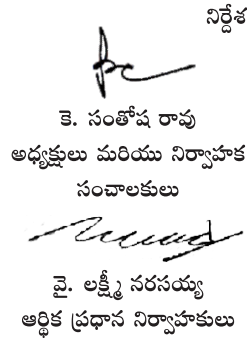 నిర్దేశ
కె. సంతోష రావు
అధ్యక్షులు మరియు నిర్వాహక
సంచాలకులు
వై. లక్ష్మీ నరసయ్య
ఆర్థిక ప్రధాన నిర్వాహకులు